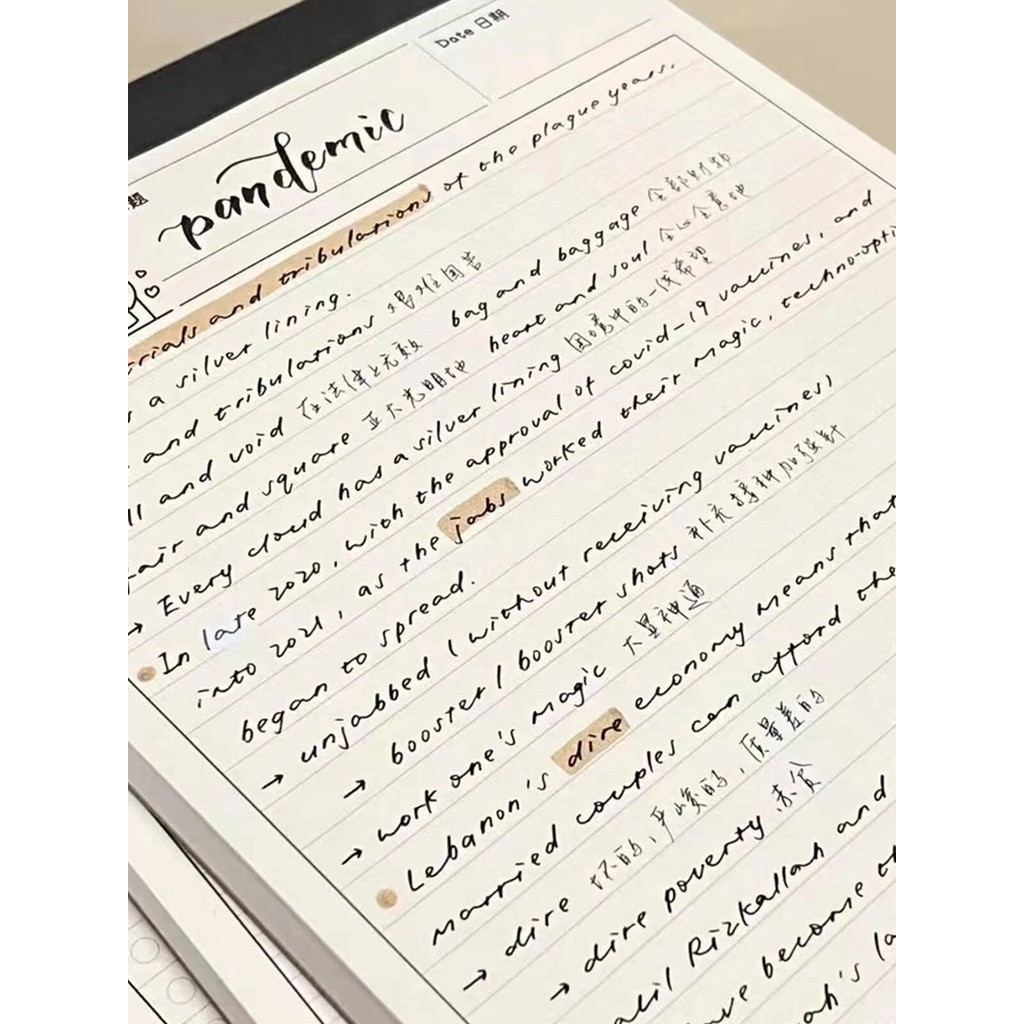 Date 日期
题
pandemic
trials and tribulations of the plague years.
a silver lining.
and tribulations 艰难困苦 bag and baggage 全部财物
and void 在法律上无效 heart and soul 全心全意地
air and square 正大光明地
Every cloud has a silver lining 困境中的一线希望
In late 2020, with the approval of covid-19 vaccines, and
into 2021, as the jabs worked their magic, techno-opti
began to spread.
→ unjabbed (without receiving vaccines)
→ booster / booster shots 补充接种加强针
→ work one's magic 大显神通
Lebanon's dire economy means that
married couples can afford the
→ dire 坏的,严峻的,质量差的
→ dire poverty 赤贫
alil Rizkallah and
ave become
ah's la